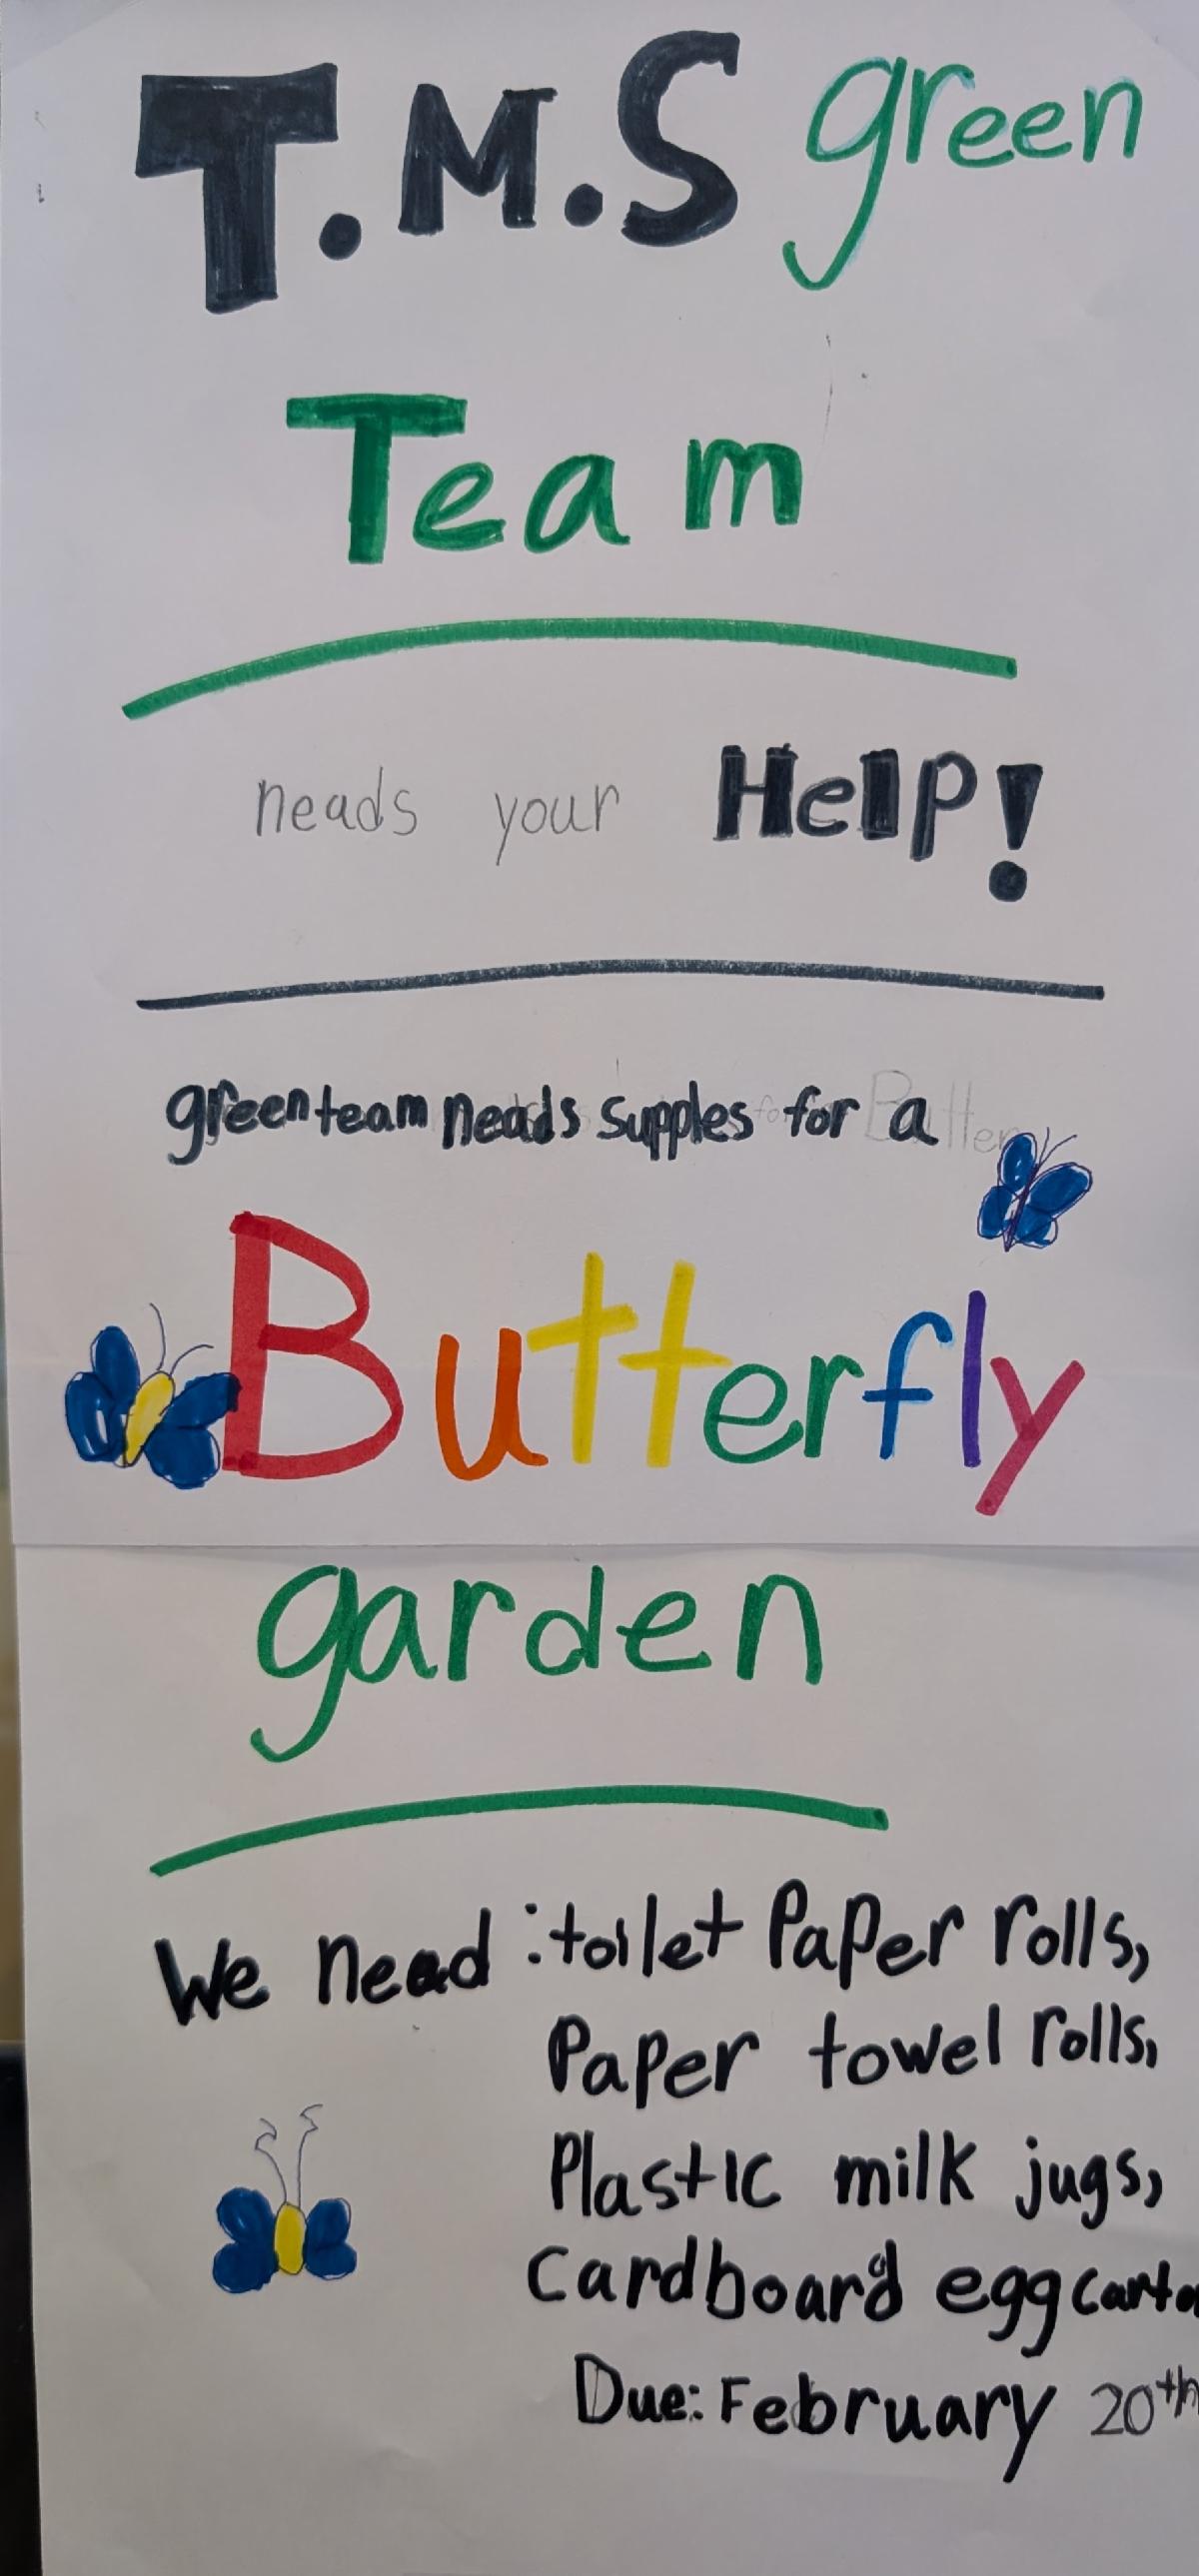 T.M.S green
Team
neads your Help!
greenteam neads supples for a
Butterfly
garden
We nead : toilet Paper rolls,
Paper towel rolls,
Plastic milk jugs,
Cardboard egg carto
Due: February 20th